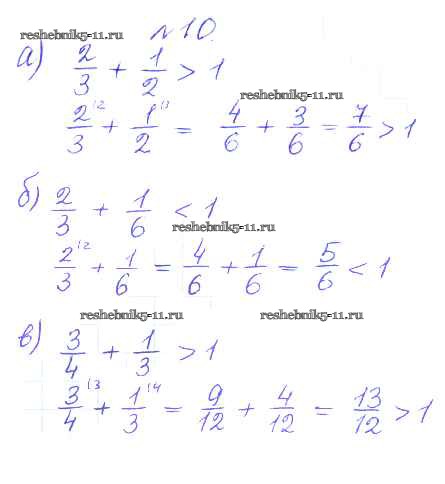 №10.
reshebnik5-11.ru
а) 2/3 + 1/2 > 1
reshebnik5-11.ru
2/3 |2 + 1/2 |3 = 4/6 + 3/6 = 7/6 > 1
б) 2/3 + 1/6 < 1
reshebnik5-11.ru
2/3 |2 + 1/6 = 4/6 + 1/6 = 5/6 < 1
reshebnik5-11.ru reshebnik5-11.ru
в) 3/4 + 1/3 > 1
3/4 |3 + 1/3 |4 = 9/12 + 4/12 = 13/12 > 1